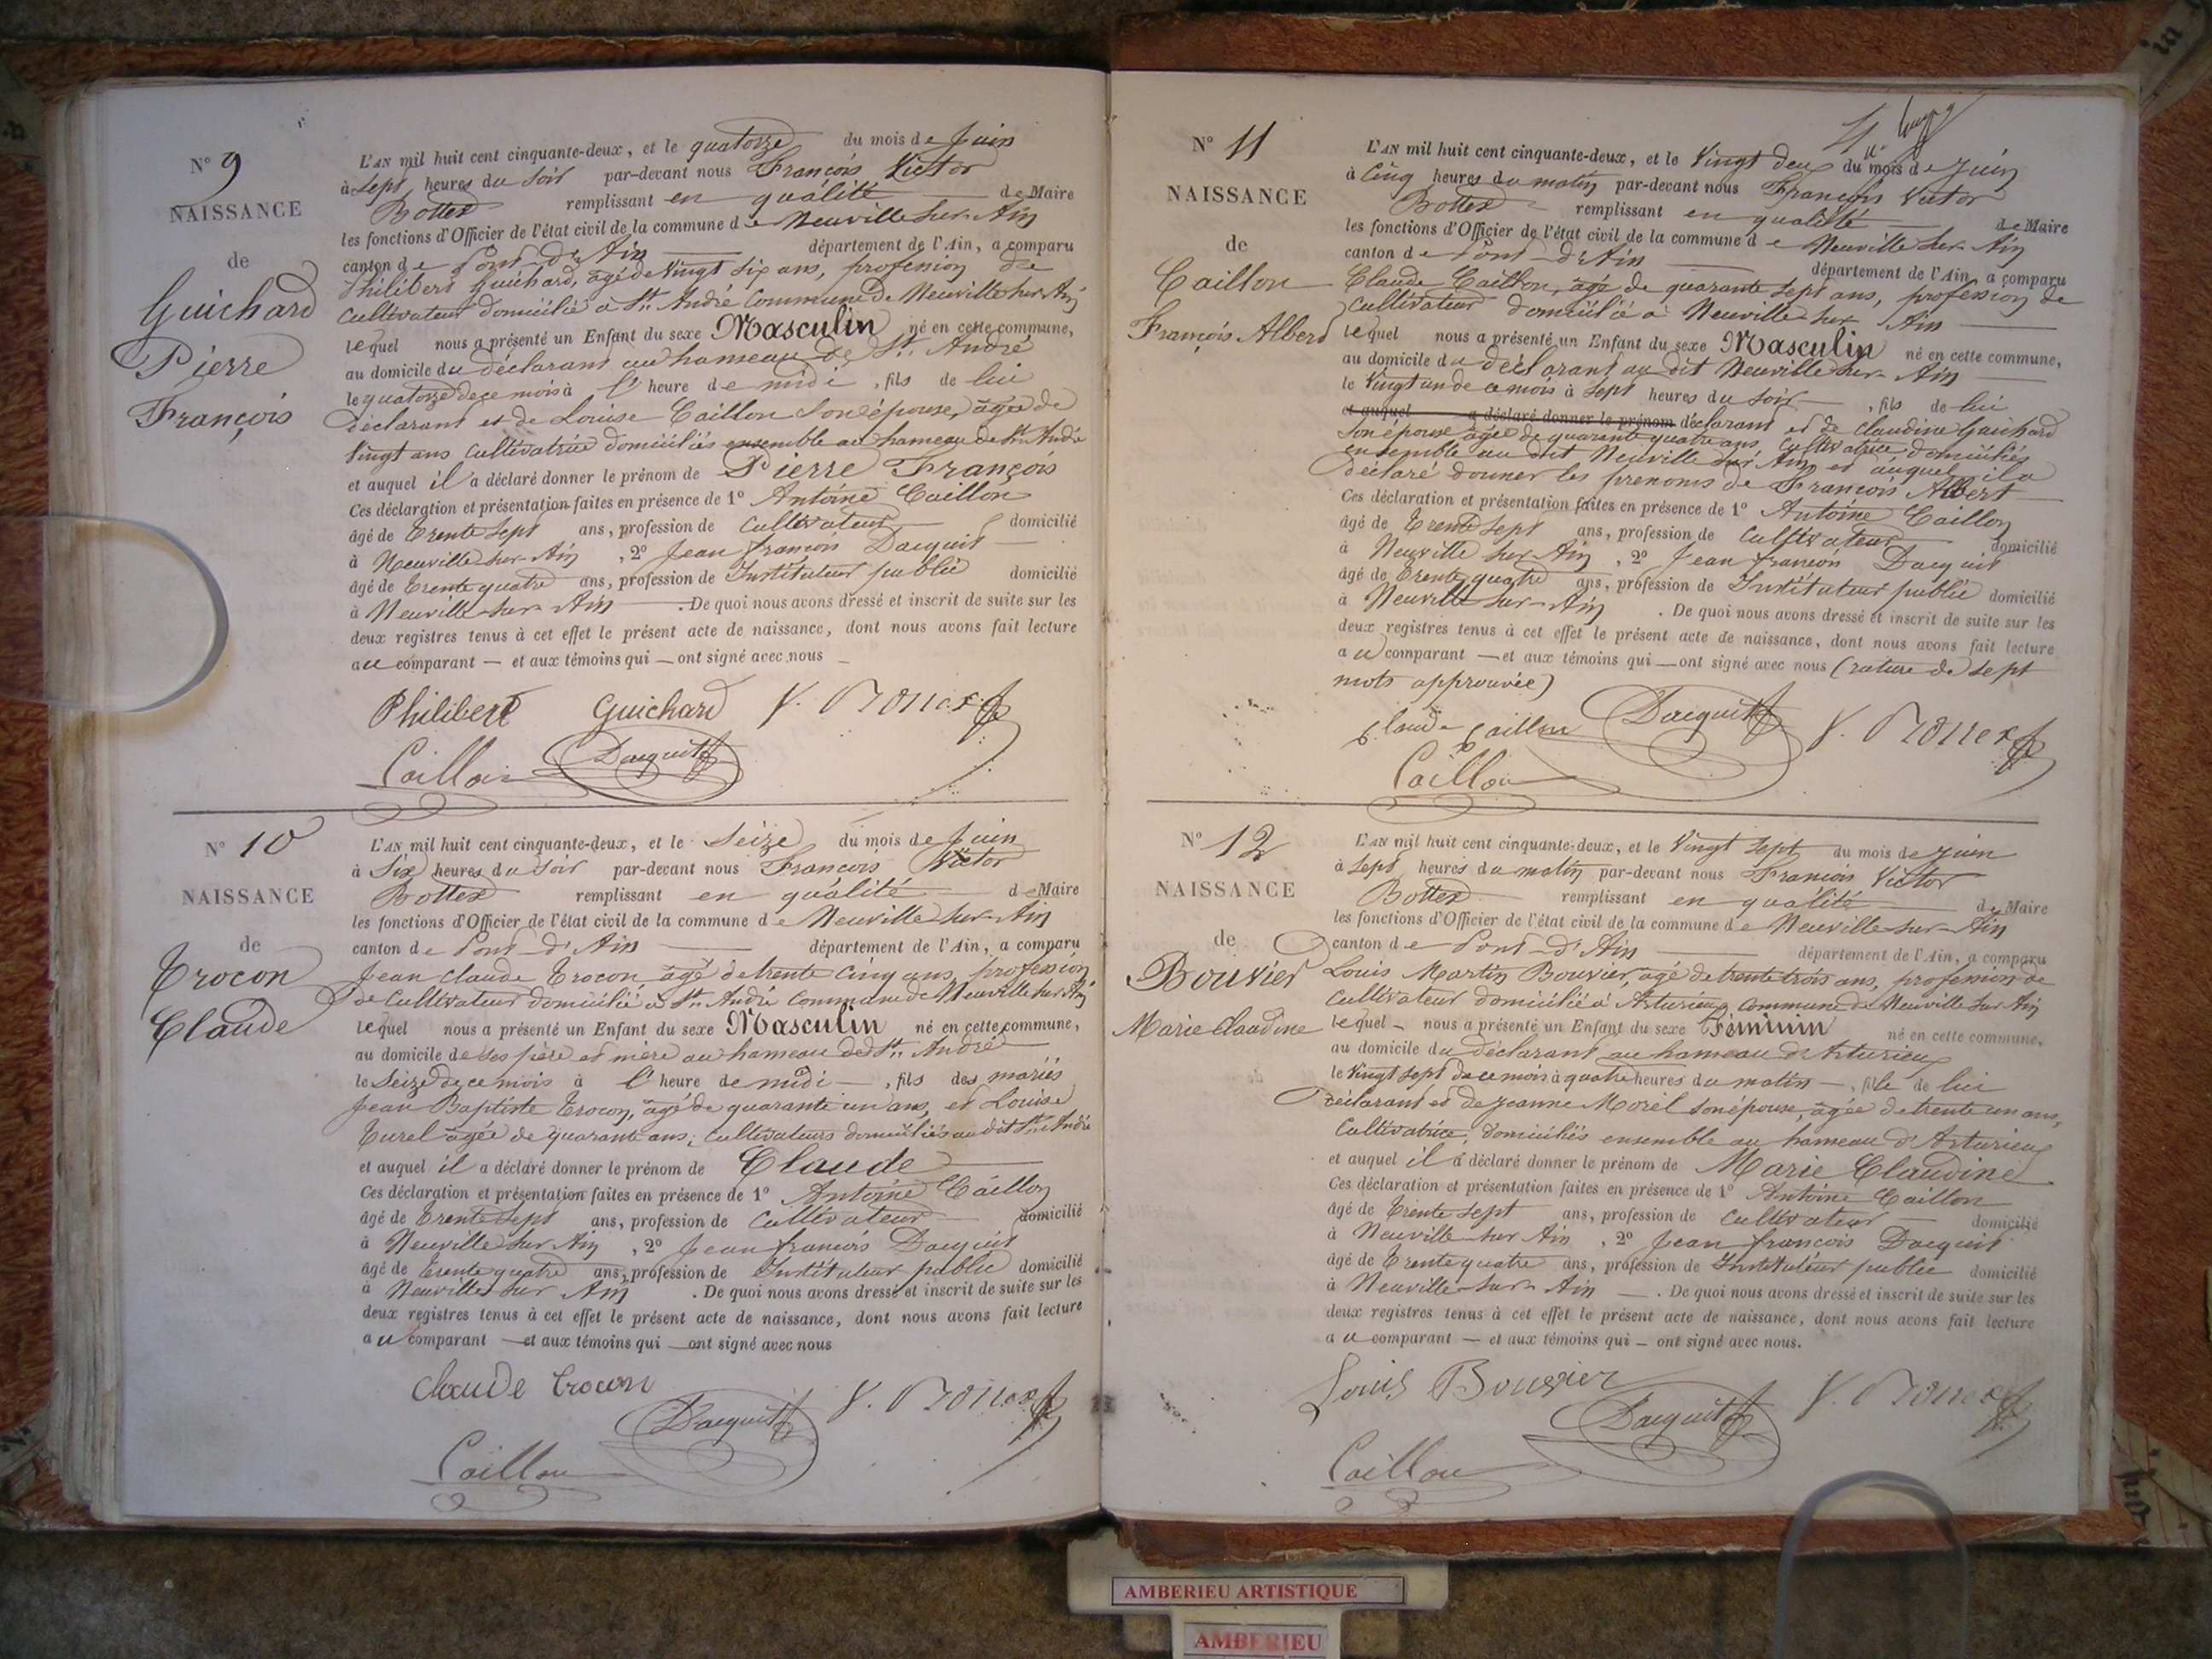 N° 9
NAISSANCE
de
Guichard
Pierre
François
L'AN mil huit cent cinquante-deux, et le quatorze du mois de Juin
à Sept heures du Soir par-devant nous François Victor
Bottex remplissant en qualité de Maire
les fonctions d'Officier de l'état civil de la commune de Neuville sur Ain
canton de Pont-d'Ain département de l'Ain, a comparu
Philibert Guichard, âgé de Vingt six ans, profession de
Cultivateur domicilié à St. André Commune de Neuville sur Ain
lequel nous a présenté un Enfant du sexe Masculin né en cette commune,
au domicile du déclarant au hameau de St. André
le quatorze de ce mois à l' heure de midi, fils de lui
déclarant et de Louise Caillon Son épouse, âgée de
Vingt ans cultivatrice domiciliés ensemble au hameau de St. André
et auquel il a déclaré donner le prénom de Pierre François
Ces déclaration et présentation faites en présence de 1° Antoine Caillon
âgé de trente sept ans, profession de Cultivateur domicilié
à Neuville sur Ain, 2° Jean françois Dacquit
âgé de trente quatre ans, profession de Instituteur public domicilié
à Neuville sur Ain. De quoi nous avons dressé et inscrit de suite sur les
deux registres tenus à cet effet le présent acte de naissance, dont nous avons fait lecture
au comparant — et aux témoins qui — ont signé avec nous
Philibert Guichard V. Bottex
Caillon Dacquit
N° 10
NAISSANCE
de
Trocon
Claude
L'AN mil huit cent cinquante-deux, et le Seize du mois de Juin
à Six heures du Soir par-devant nous François Victor
Bottex remplissant en qualité de Maire
les fonctions d'Officier de l'état civil de la commune de Neuville sur Ain
canton de Pont-d'Ain département de l'Ain, a comparu
Jean Claude Trocon âgé de trente cinq ans, profession
de Cultivateur domicilié à St. André Commune de Neuville sur Ain
lequel nous a présenté un Enfant du sexe Masculin né en cette commune,
au domicile de ses père et mère au hameau de St. André
le Seize de ce mois à l' heure de midi —, fils des mariés
Jean Baptiste Trocon, âgé de quarante un ans, et Louise
Turel âgée de quarante ans, cultivateurs domiciliés audit St. André
et auquel il a déclaré donner le prénom de Claude
Ces déclaration et présentation faites en présence de 1° Antoine Caillon
âgé de trente sept ans, profession de Cultivateur domicilié
à Neuville sur Ain, 2° Jean françois Dacquit
âgé de trente quatre ans, profession de Instituteur public domicilié
à Neuville sur Ain. De quoi nous avons dressé et inscrit de suite sur les
deux registres tenus à cet effet le présent acte de naissance, dont nous avons fait lecture
au comparant — et aux témoins qui — ont signé avec nous
Claude Trocon V. Bottex
Dacquit
Caillon
11
N° 11
NAISSANCE
de
Caillon
François Albert
L'AN mil huit cent cinquante-deux, et le Vingt deux du mois de Juin
à Cinq heures du matin par-devant nous François Victor
Bottex remplissant en qualité de Maire
les fonctions d'Officier de l'état civil de la commune de Neuville sur Ain
canton de Pont-d'Ain département de l'Ain, a comparu
Claude Caillon, âgé de quarante sept ans, profession de
Cultivateur domicilié à Neuville sur Ain
lequel nous a présenté un Enfant du sexe Masculin né en cette commune,
au domicile du déclarant au dit Neuville sur Ain
le Vingt un de ce mois à Sept heures du Soir, fils de lui
et auquel a déclaré donner le prénom déclarant et de Claudine Guichard
Son épouse âgée de quarante quatre ans, cultivatrice domiciliés
ensemble au dit Neuville sur Ain, et auquel il a
déclaré donner les prenoms de François Albert
Ces déclaration et présentation faites en présence de 1° Antoine Caillon
âgé de trente sept ans, profession de Cultivateur domicilié
à Neuville sur Ain, 2° Jean françois Dacquit
âgé de trente quatre ans, profession de Instituteur public domicilié
à Neuville sur Ain. De quoi nous avons dressé et inscrit de suite sur les
deux registres tenus à cet effet le présent acte de naissance, dont nous avons fait lecture
au comparant — et aux témoins qui — ont signé avec nous (rature de sept
mots approuvée)
Claude Caillon Dacquit V. Bottex
Caillon
N° 12
NAISSANCE
de
Bouvier
Marie Claudine
L'AN mil huit cent cinquante-deux, et le Vingt Sept du mois de Juin
à Sept heures du matin par-devant nous François Victor
Bottex remplissant en qualité de Maire
les fonctions d'Officier de l'état civil de la commune de Neuville sur Ain
canton de Pont-d'Ain département de l'Ain, a comparu
Louis Martin Bouvier, âgé de trente trois ans, profession de
Cultivateur domicilié à Arturieux Commune de Neuville sur Ain
lequel — nous a présenté un Enfant du sexe Féminin né en cette commune,
au domicile du déclarant au hameau d'Arturieux
le Vingt Sept de ce mois à quatre heures du matin —, fille de lui
déclarant et de Jeanne Morel son épouse, âgée de trente un ans,
Cultivatrice, domiciliés ensemble au hameau d'Arturieux
et auquel il a déclaré donner le prénom de Marie Claudine
Ces déclaration et présentation faites en présence de 1° Antoine Caillon
âgé de Trente sept ans, profession de Cultivateur domicilié
à Neuville sur Ain, 2° Jean françois Dacquit
âgé de trente quatre ans, profession de Instituteur public domicilié
à Neuville sur Ain —. De quoi nous avons dressé et inscrit de suite sur les
deux registres tenus à cet effet le présent acte de naissance, dont nous avons fait lecture
au comparant — et aux témoins qui — ont signé avec nous.
Louis Bouvier V. Bottex
Dacquit
Caillon
AMBERIEU ARTISTIQUE
AMBERIEU